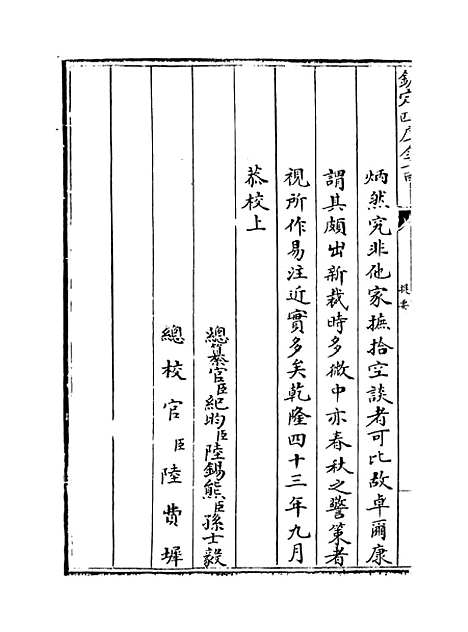 欽定四庫全書
提要
炳然究非他家摭拾空談者可比故卓爾康
謂其頗出新裁時多微中亦春秋之警策者
視所作易注近實多矣乾隆四十三年九月
恭校上
總纂官臣紀昀臣陸錫熊臣孫士毅
總校官臣陸費墀